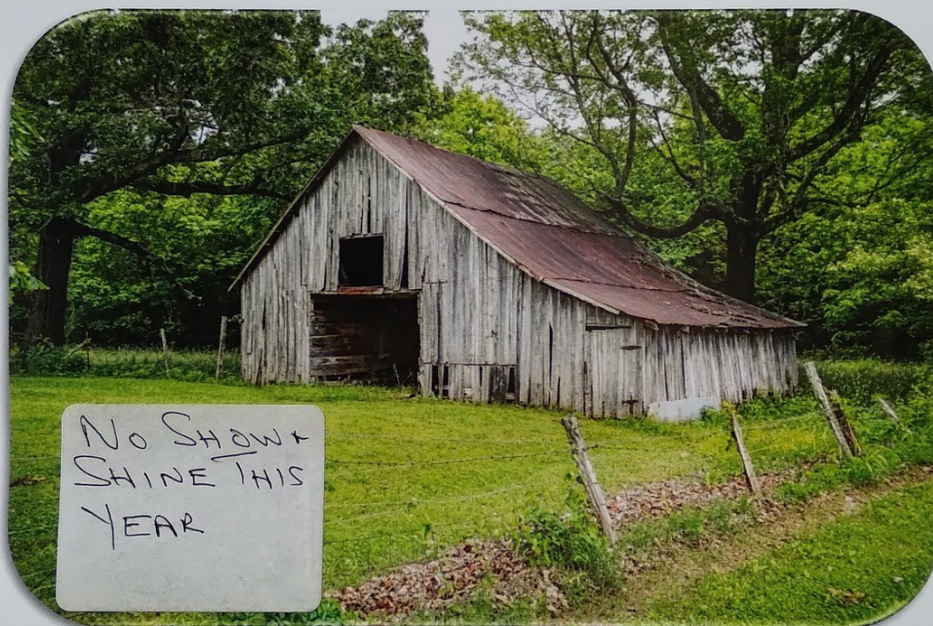 No SHOW +
SHINE THIS
YEAR